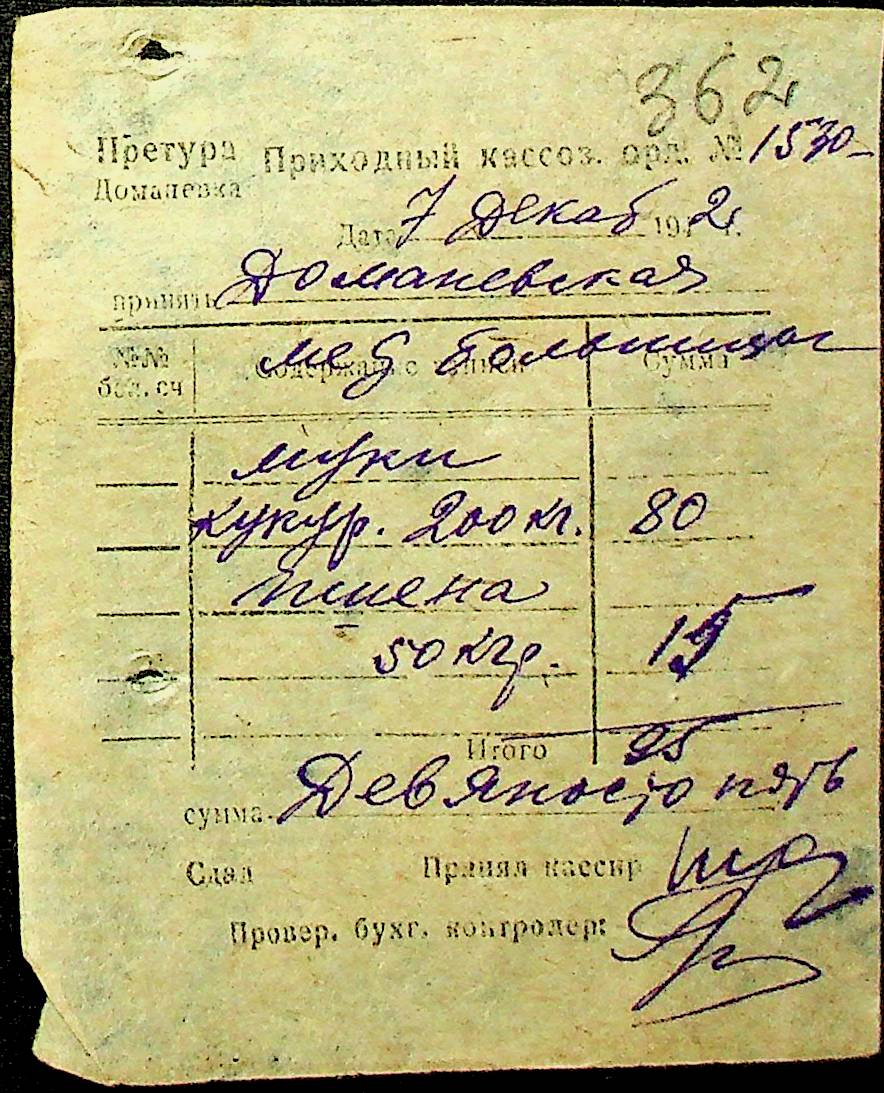 362
Претура Приходный кассов. орд. № 1530-
Доманевка
Дата 7 Декаб 1942 г.
принять Доманевская
мед больница
№№ Содержание записи Сумма
бал. сч
муки
кукур. 200 кг. 80
пшена
50 кгр. 15
Итого 95
сумма Девяносто пять
Сдал Принял кассир
Провер. бухг. контролер: